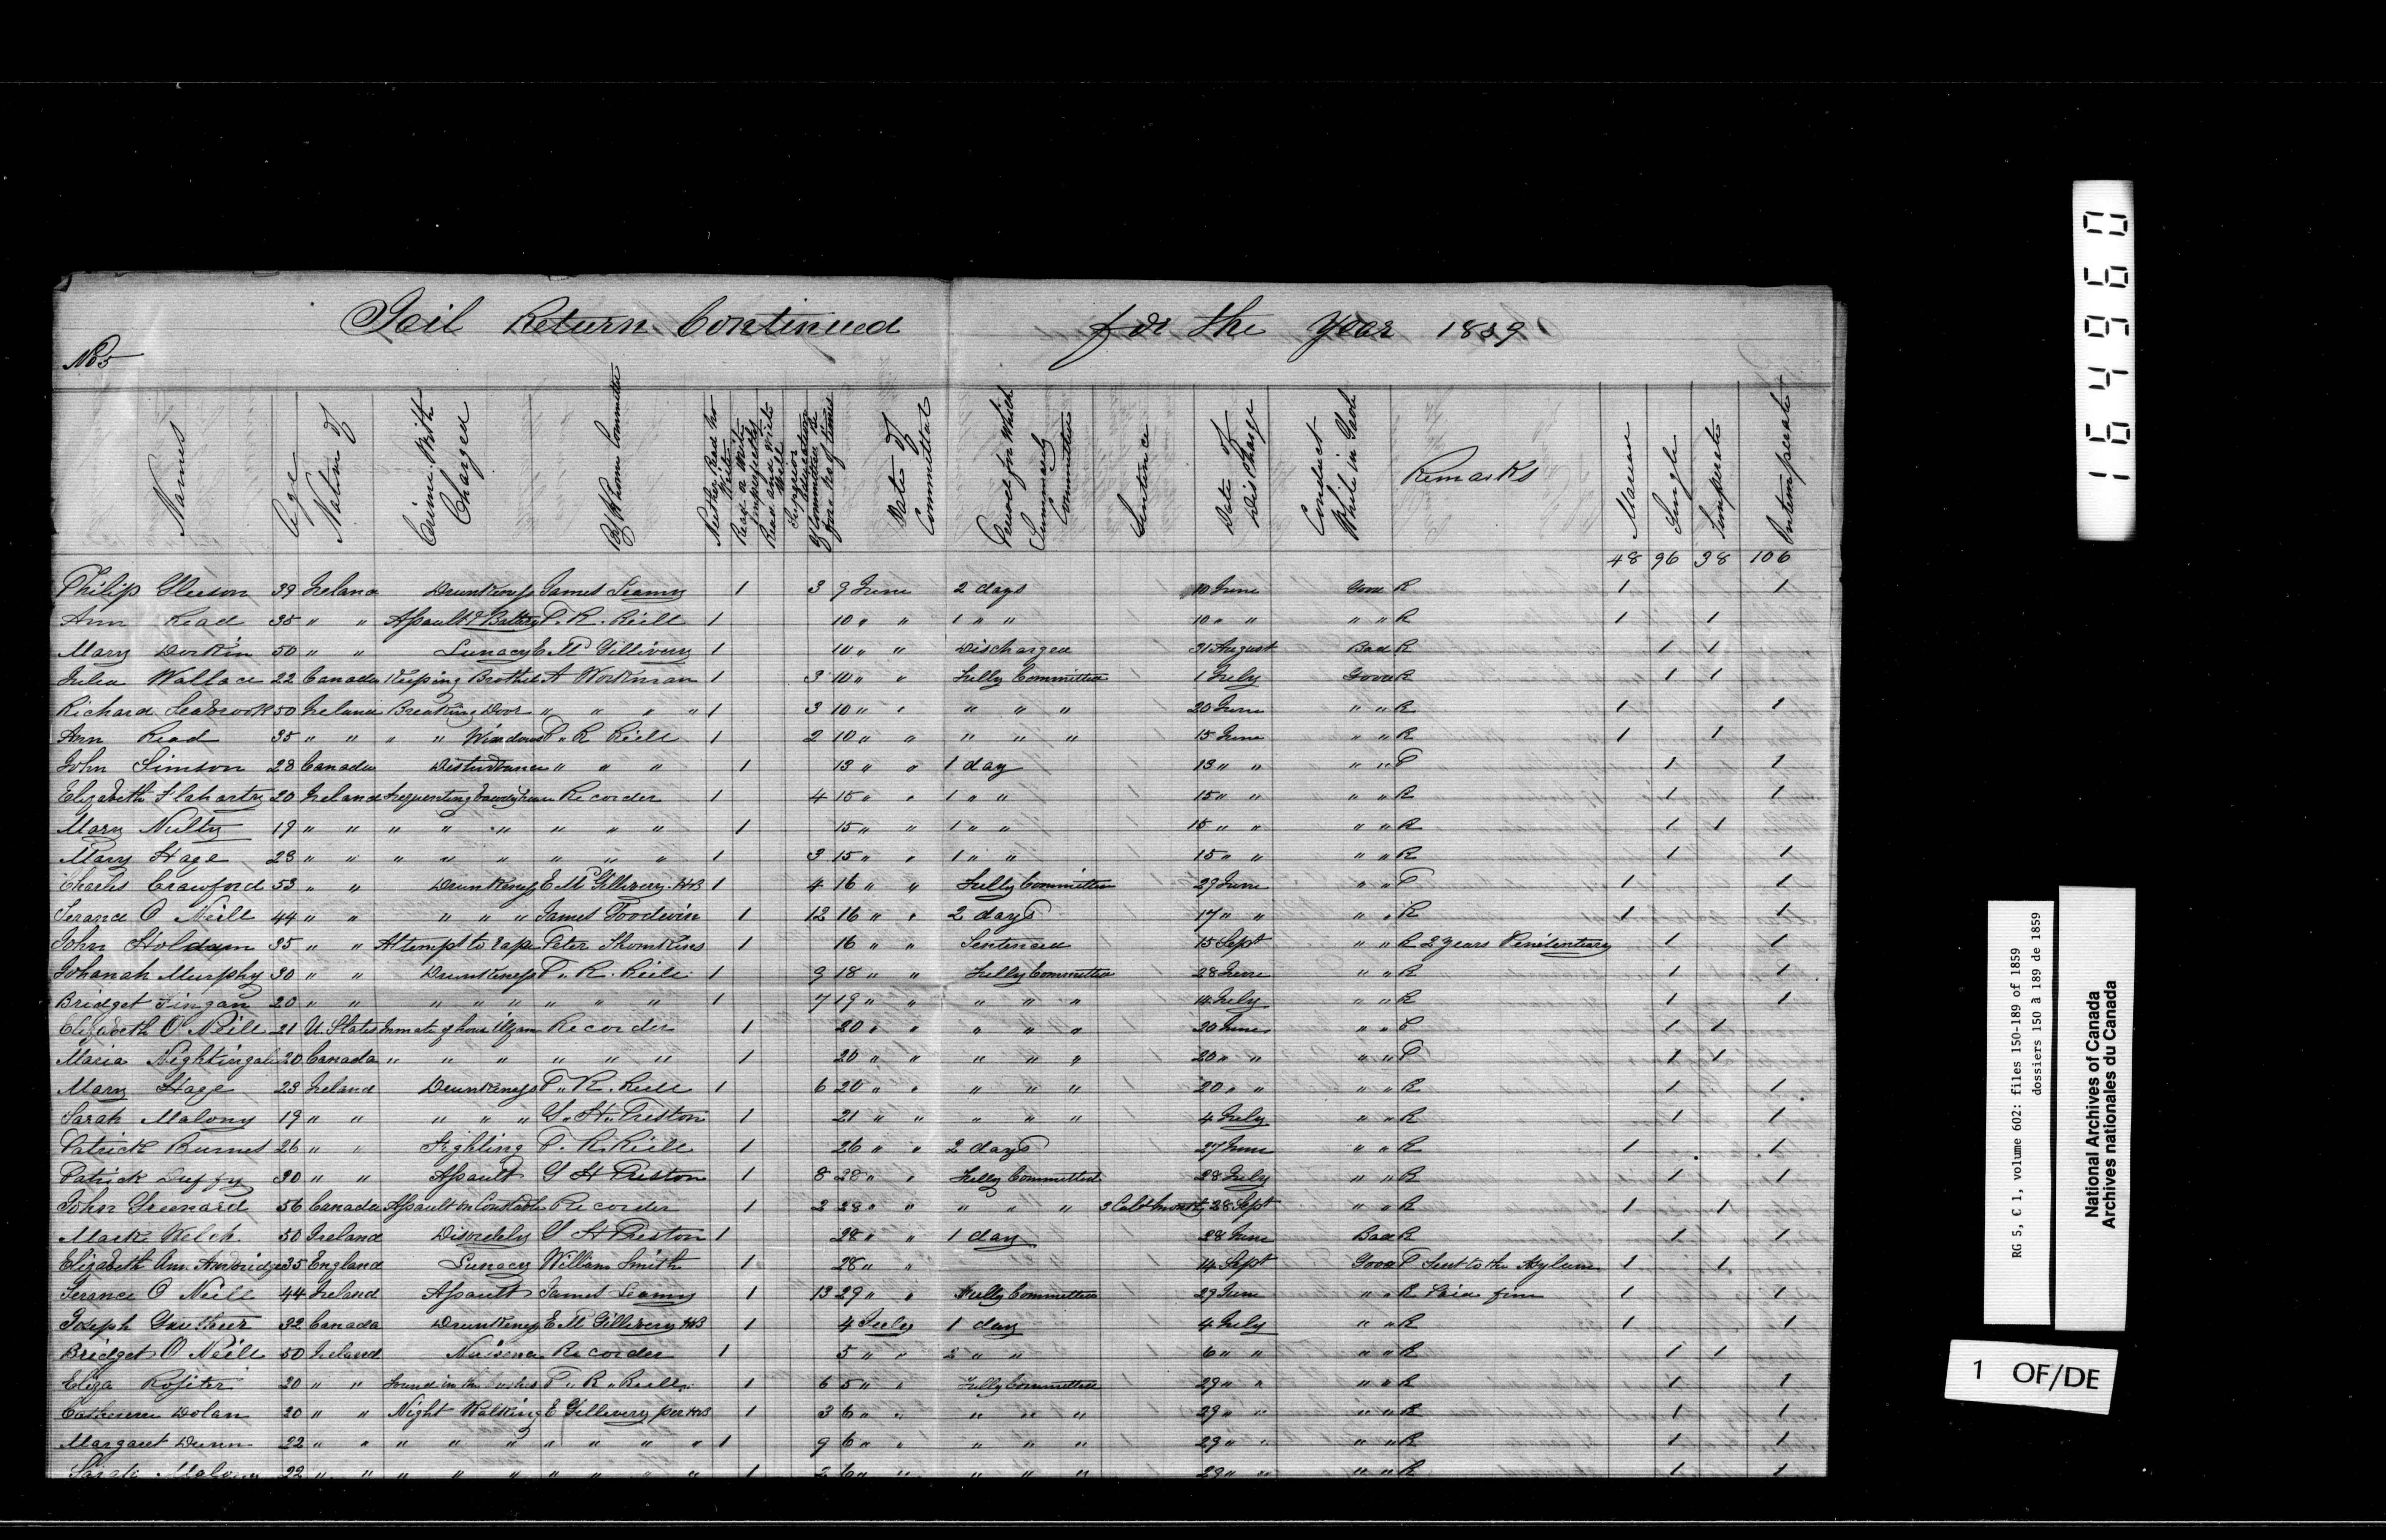 Jail Return Continued for the Year 1859
No 5
Names
Age
Native of
Crime With Charged
By Whom Committed
Neither Read nor Write
Read or Write imperfectly
Read and Write Well
Superior Education
If Committed before No of times
Date of Committal
Period for Which Summarily Committed
Sentence
Date of Discharge
Conduct While in Gaol
Remarks
Married
Single
Temperate
Intemperate
48 96 38 106
Philip Gleeson 39 Ireland Drunkeness James Leamy 1 3 9 June 2 days 10 June Good R 1 1
Ann Read 35 " " Assault & Battery P. R. Riell 1 10 " " 1 " " 10 " " " " R 1 1
Mary Dorkin 50 " " Lunacy E Mc Gillivery 1 10 " " Discharged 31 August Bad R 1 1
Julia Wallace 22 Canada Keeping Brothel A Workman 1 3 10 " " Fully Committed 1 July Good R 1 1
Richard Seabrook 50 Ireland Breaking Door " " " " 1 3 10 " " " " " 20 June " " R 1 1
Ann Read 35 " " " " Windows P. R Riell 1 2 10 " " " " " 15 June " " R 1 1
John Simson 28 Canada Disturbance " " " 1 13 " " 1 day 13 " " " " P 1 1
Elizabeth Flaharty 20 Ireland frequenting bawdy house Recorder 1 4 15 " " 1 " " 15 " " " " R 1 1
Mary Nulty 19 " " " " " " " " 1 15 " " 1 " " 15 " " " " R 1 1
Mary Hage 23 " " " " " " " " 1 3 15 " " 1 " " 15 " " " " R 1 1
Charles Crawford 53 " " Drunkeness E Mc Gillivery HB 1 4 16 " " Fully Committed 29 June " " P 1 1
Terance O Neill 44 " " " " " James Goodwin 1 12 16 " " 2 days 17 " " " " R 1 1
John Holdam 35 " " Attempt to rape Peter Thomkins 1 16 " " Sentenced 15 Sept " " R 2 years Penitentiary 1 1
Johanah Murphy 30 " " Drunkeness P. R. Riell 1 9 18 " " Fully Committed 28 June " " R 1 1
Bridget Fingan 20 " " " " " " " " 1 7 19 " " " " " 14 July " " R 1 1
Elizabeth O'Neill 21 U. States Inmate of house Recorder 1 20 " " " " " 20 June " " P 1 1
Maria Nightingale 20 Canada " " " " " " 1 20 " " " " " 20 " " " " P 1 1
Mary Hage 23 Ireland Drunkeness P. R. Riell 1 6 20 " " " " " 20 " " " " R 1 1
Sarah Malony 19 " " " " " G. H. Preston 1 21 " " " " " 4 July " " R 1 1
Patrick Burns 26 " " Fighting P. R. Riell 1 26 " " 2 days 27 June " " R 1 1
Patrick Duffy 30 " " Assault G H Preston 1 8 28 " " Fully Committed 28 July " " R 1 1
John Greenard 56 Canada Assault on Constable Recorder 1 2 28 " " " " " 3 Cald months 28 Sept " " R 1 1
Mark Welch 50 Ireland Disorderly G H Preston 1 28 " " 1 day 28 June Bad R 1 1
Elizabeth Ann 35 England Lunacy William Smith 1 28 " " 14 Sept Good P Sent to the Asylum 1 1
Terance O Neill 44 Ireland Assault James Leamy 1 13 29 " " Fully Committed 29 June " " R Paid fine 1 1
Joseph Gauthier 32 Canada Drunkeness E Mc Gillivery HB 1 4 July 1 day 4 July " " R 1 1
Bridget O Neill 50 Ireland Nuisence Recorder 1 5 " " 2 " " 6 " " " " R 1 1
Eliza Rositer 20 " " Found in the bushes P. R. Riell 1 6 5 " " Fully Committed 29 " " " " R 1 1
Catherine Dolan 20 " " Night Walking E Gillivery per HB 1 3 6 " " " " " 29 " " " " R 1 1
Margaret Dunn 22 " " " " " " " " " 1 9 6 " " " " " 29 " " " " R 1 1
Sarah Malony 22 " " " " " " " " " 1 2 6 " " " " " 29 " " " " R 1 1
164960
RG 5, C 1, volume 602: files 150-189 of 1859
dossiers 150 à 189 de 1859
National Archives of Canada
Archives nationales du Canada
1 OF/DE